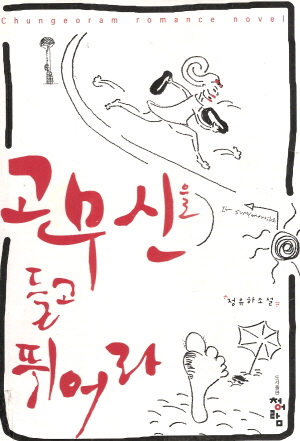 Chungeoram romance novel
고무신을
들고
뛰어라
정유하 소설
도서출판
청어람